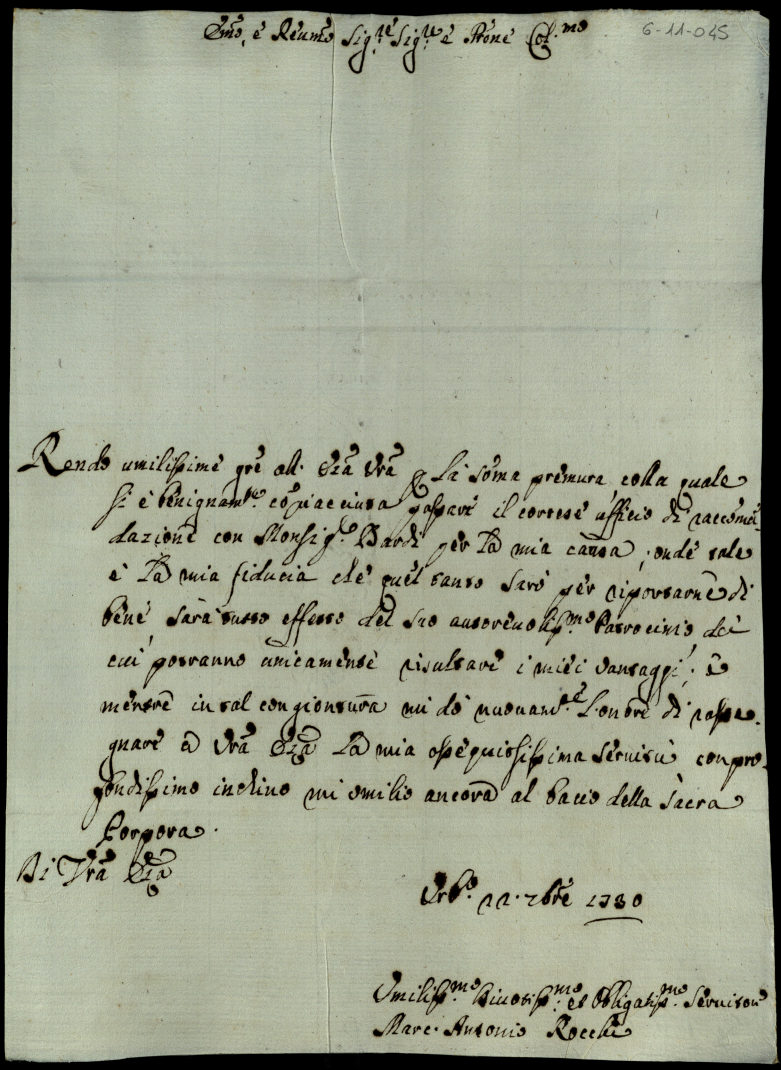 Emo, e Reumo Sig.re Sig.re e Prone Col.mo
6-11-045
Rendo umilissime gre all' Eza Vra p la soma premura colla quale
si è benignam.te copiacciuta passare il cortese ufficio di raccomē-
dazione con Monsig.e Bardi per la mia causa, onde tale
è la mia fiducia che quel tanto sarò per riportarne di
bene sarà tutto effetto del suo autorevoliss.mo Patrocinio da
cui potranno unicamente risultare i miei vantaggi; e
mentre in tal congiontura mi dò nuovam.te l'onore di rasse-
gnare a Vra Eza la mia ossequiosissima servitù con pro-
fondissimo inchino mi umilio ancora al bacio della sacra
Porpora.
Di Vra Eza
Urb.o 22. 7bre 1730
Umiliss.mo Divotiss.mo et Obligatiss.mo Servitore
Marc. Antonio Rocchi